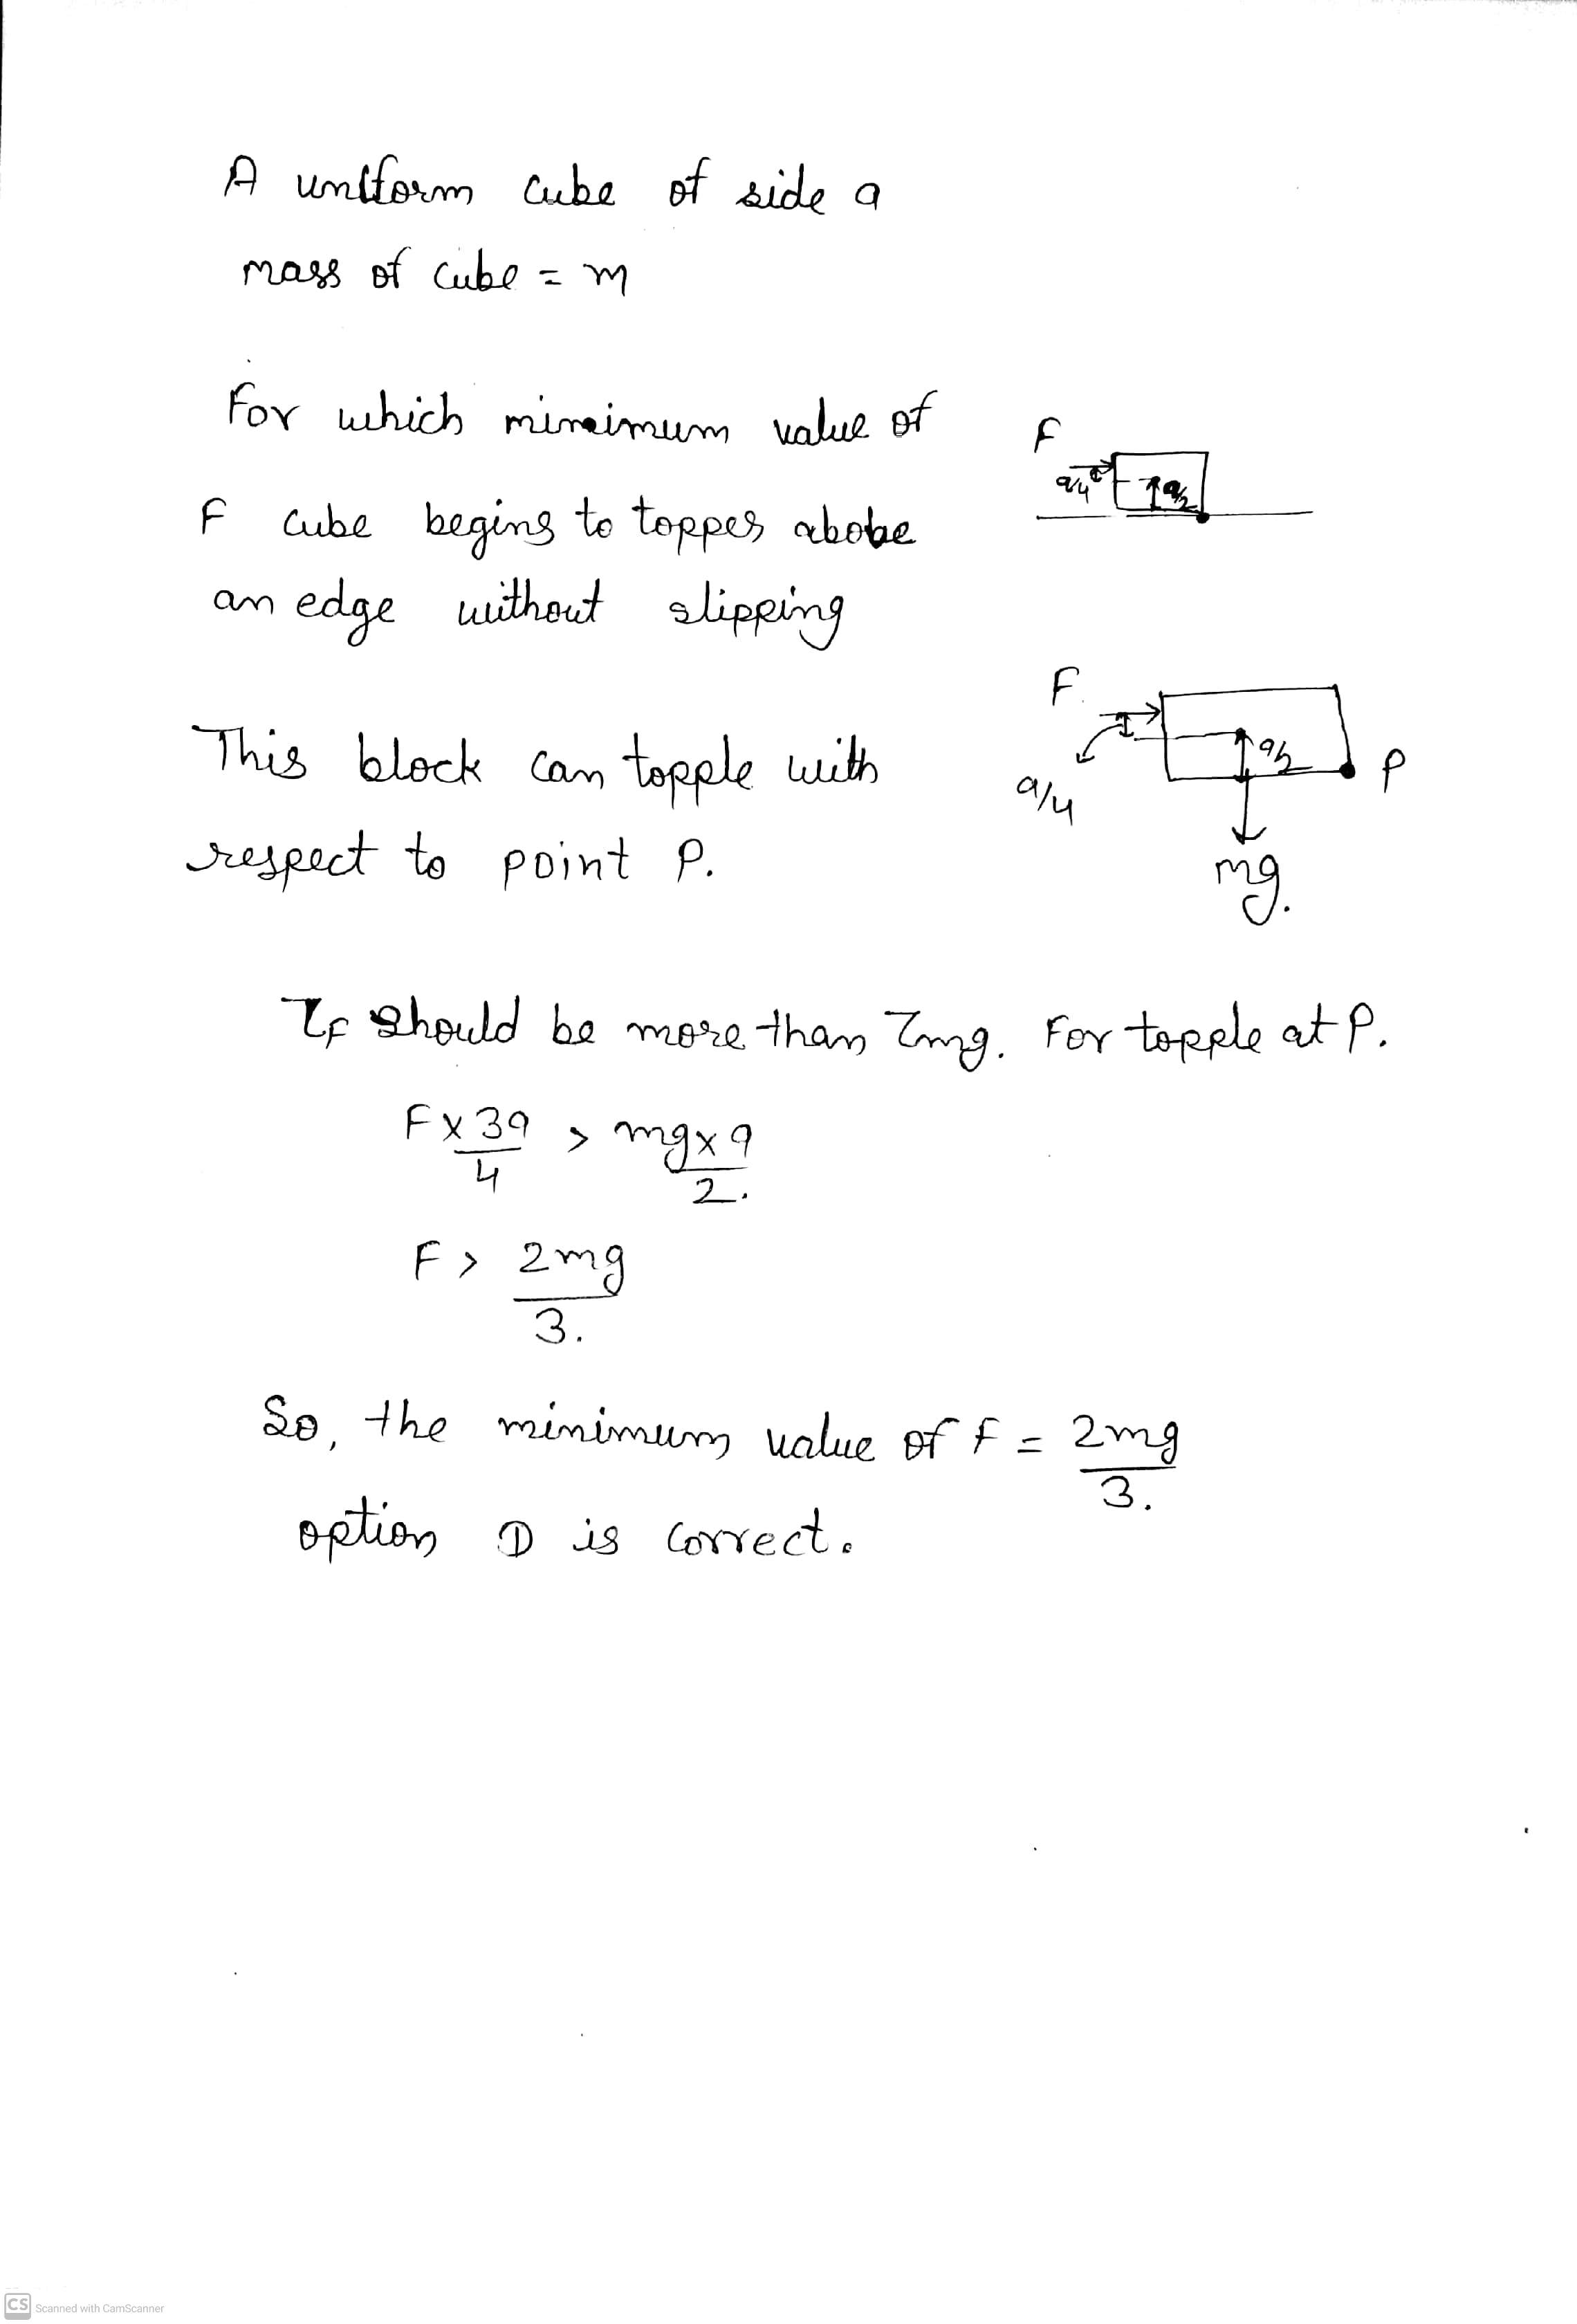 A uniform cube of side a
mass of cube = m
For which minimum value of
F cube begins to toppes abobe
an edge without slipping
F
a/4
a/2
This block can topple with
respect to point P.
F
a/4
a/2
P
mg.
τF should be more than τmg. For topple at P.
F x 3a/4 > mg x a/2.
F > 2mg/3.
So, the minimum value of F = 2mg/3.
option D is correct.
CS Scanned with CamScanner